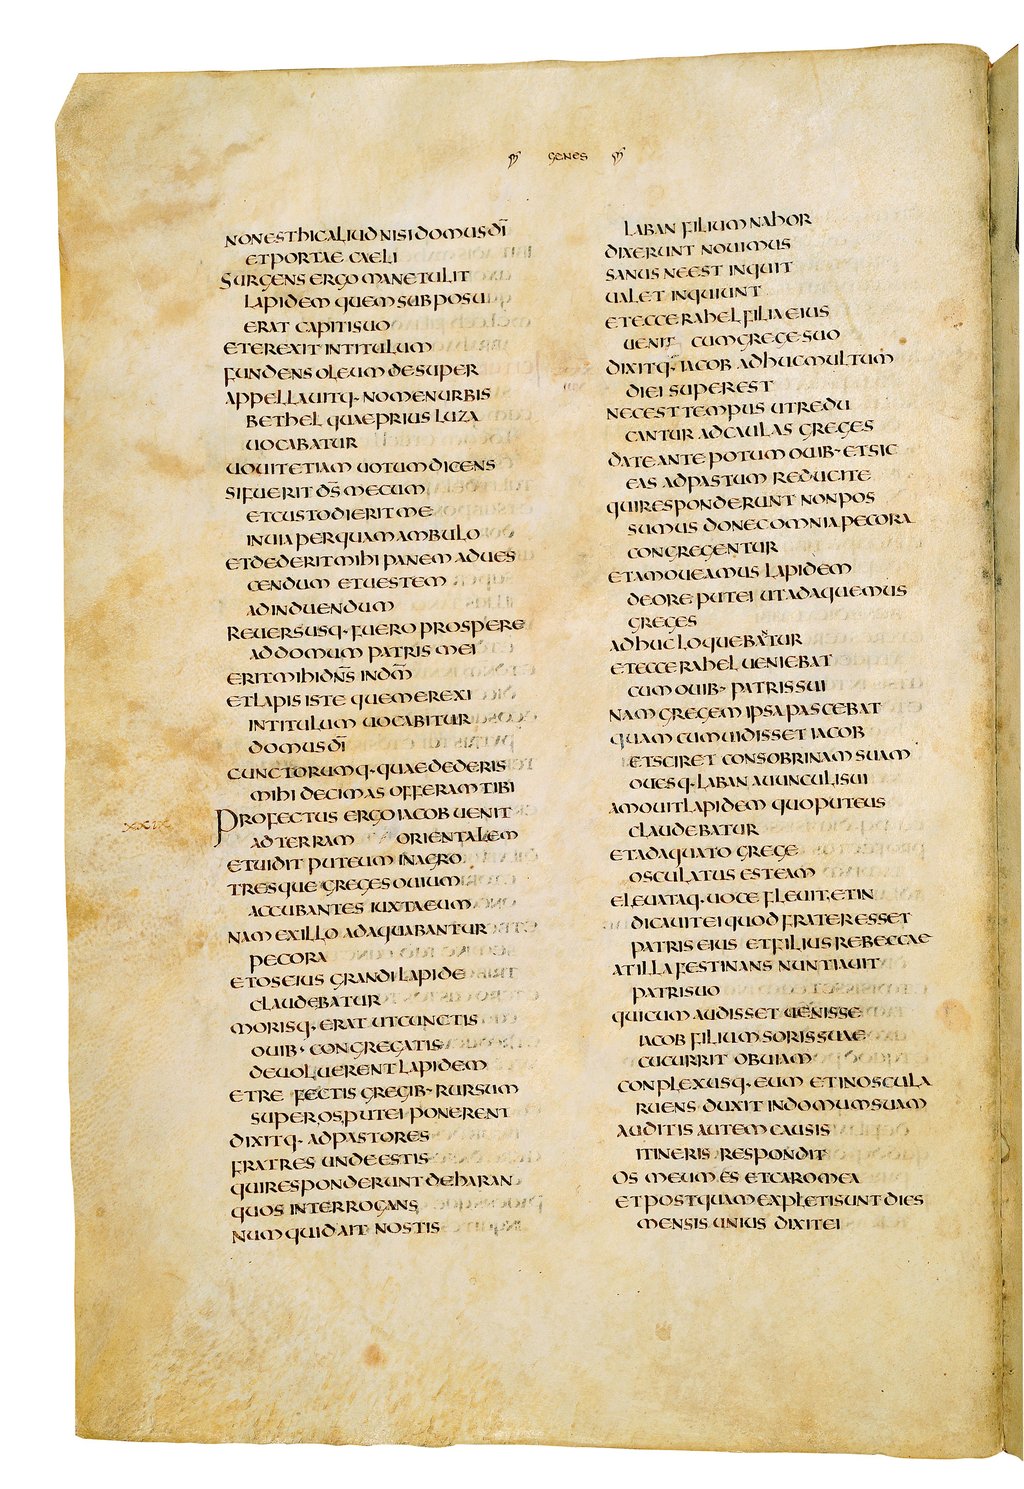 GENES
NONESTHICALIUDNISIDOMUSDI
ETPORTAE CAELI
SURGENS ERGO MANETULIT
LAPIDEM QUEM SUBPOSU
ERAT CAPITISUO
ETEREXIT INTITULUM
FUNDENS OLEUM DESUPER
APPELLAUITQ· NOMENURBIS
BETHEL QUAEPRIUS LUZA
UOCABATUR
UOUITETIAM UOTUMDICENS
SIFUERIT DS MECUM
ETCUSTODIERIT ME
INUIAPERQUAMAMBULO
ETDEDERITMIHI PANEM ADUES
CENDUM ETUESTEM
ADINDUENDUM
REUERSUSQ· FUERO PROSPERE
ADDOMUM PATRIS MEI
ERITMIHIDNS INDM
ETLAPIS ISTE QUEMEREXI
INTITULUM UOCABITUR
DOMUSDI
CUNCTORUMQ· QUAEDEDERIS
MIHI DECIMAS OFFERAMTIBI
PROFECTUS ERGOIACOB UENIT
ADTERRAM ORIENTALEM
ETUIDIT PUTEUM INAGRO
TRESQUE GREGESOUIUM
ACCUBANTES IUXTAEUM
NAM EXILLO ADAQUABANTUR
PECORA
ETOSEIUS GRANDILAPIDE
CLAUDEBATUR
MORISQ· ERAT UTCUNCTIS
OUIB· CONGREGATIS
DEUOLUERENTLAPIDEM
ETRE FECTIS GREGIB· RURSUM
SUPEROSPUTEI PONERENT
DIXITQ· ADPASTORES
FRATRES UNDEESTIS
QUIRESPONDERUNT DEHARAN
QUOS INTERROGANS
NUMQUIDAIT NOSTIS
LABAN FILIUMNAHOR
DIXERUNT NOUIMUS
SANUS NEEST INQUIT
UALET INQUIUNT
ETECCERAHEL FILIAEIUS
UENIT CUMGREGESUO
DIXITQ· IACOB ADHUCMULTUM
DIEI SUPEREST
NECESTTEMPUS UTREDU
CANTUR ADCAULAS GREGES
DATEANTE POTUM OUIB· ETSIC
EAS ADPASTUM REDUCITE
QUIRESPONDERUNT NONPOS
SUMUS DONECOMNIAPECORA
CONGREGENTUR
ETAMOUEAMUS LAPIDEM
DEORE PUTEI UTADAQUEMUS
GREGES
ADHUCLOQUEBATUR
ETECCERAHEL UENIEBAT
CUM OUIB· PATRISSUI
NAM GREGEM IPSAPASCEBAT
QUAM CUMUIDISSET IACOB
ETSCIRET CONSOBRINAM SUAM
OUESQ· LABAN AUUNCULISUI
AMOUITLAPIDEM QUOPUTEUS
CLAUDEBATUR
ETADAQUATO GREGE
OSCULATUS ESTEAM
ELEUATAQ· UOCE FLEUIT, ETIN
DICAUITEI QUOD FRATERESSET
PATRIS EIUS ETFILIUS REBECCAE
ATILLAFESTINANS NUNTIAUIT
PATRISUO
QUICUM AUDISSET UENISSE
IACOB FILIUMSORISSUAE
CUCURRIT OBUIAM
CONPLEXUSQ· EUM ETINOSCULA
RUENS DUXIT INDOMUMSUAM
AUDITIS AUTEM CAUSIS
ITINERIS RESPONDIT
OS MEUM ES ETCAROMEA
ETPOSTQUAMEXPLETISUNTDIES
MENSIS UNIUS DIXITEI